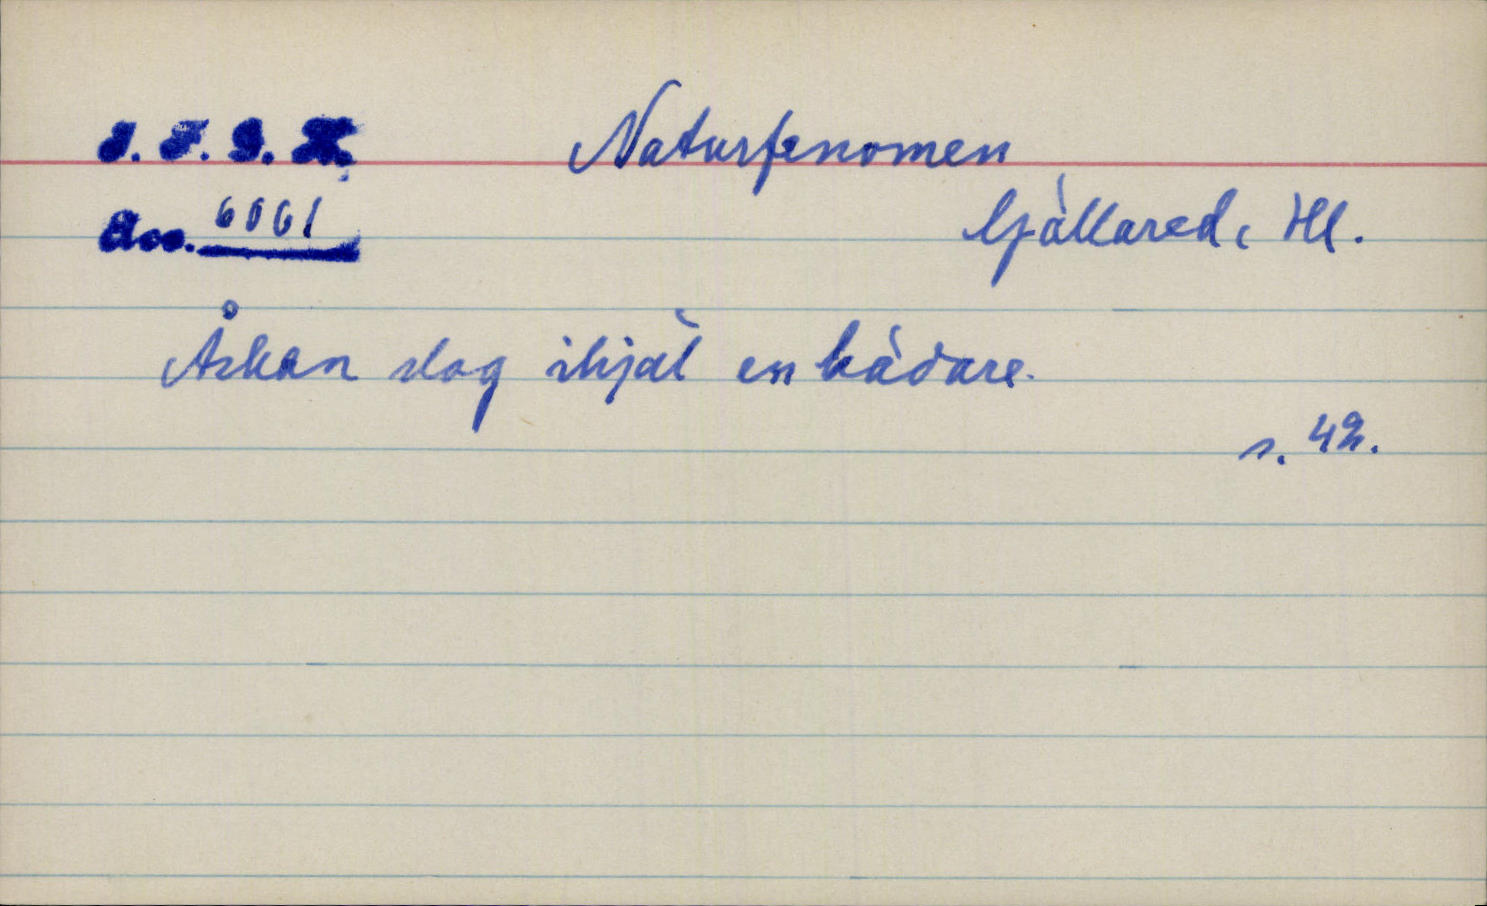 I. F. G. H. Naturfenomen
Acc. 6061 Gällared, Hl.
Åskan slog ihjäl en hädare.
s. 42.